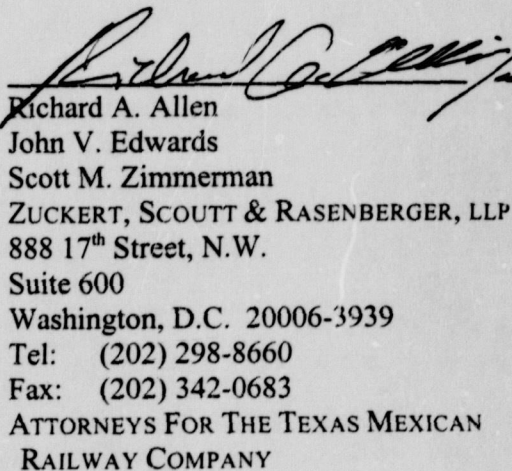 Richard A. Allen
John V. Edwards
Scott M. Zimmerman
ZUCKERT, SCOUTT & RASENBERGER, LLP
888 17th Street, N.W.
Suite 600
Washington, D.C. 20006-3939
Tel: (202) 298-8660
Fax: (202) 342-0683
ATTORNEYS FOR THE TEXAS MEXICAN
RAILWAY COMPANY